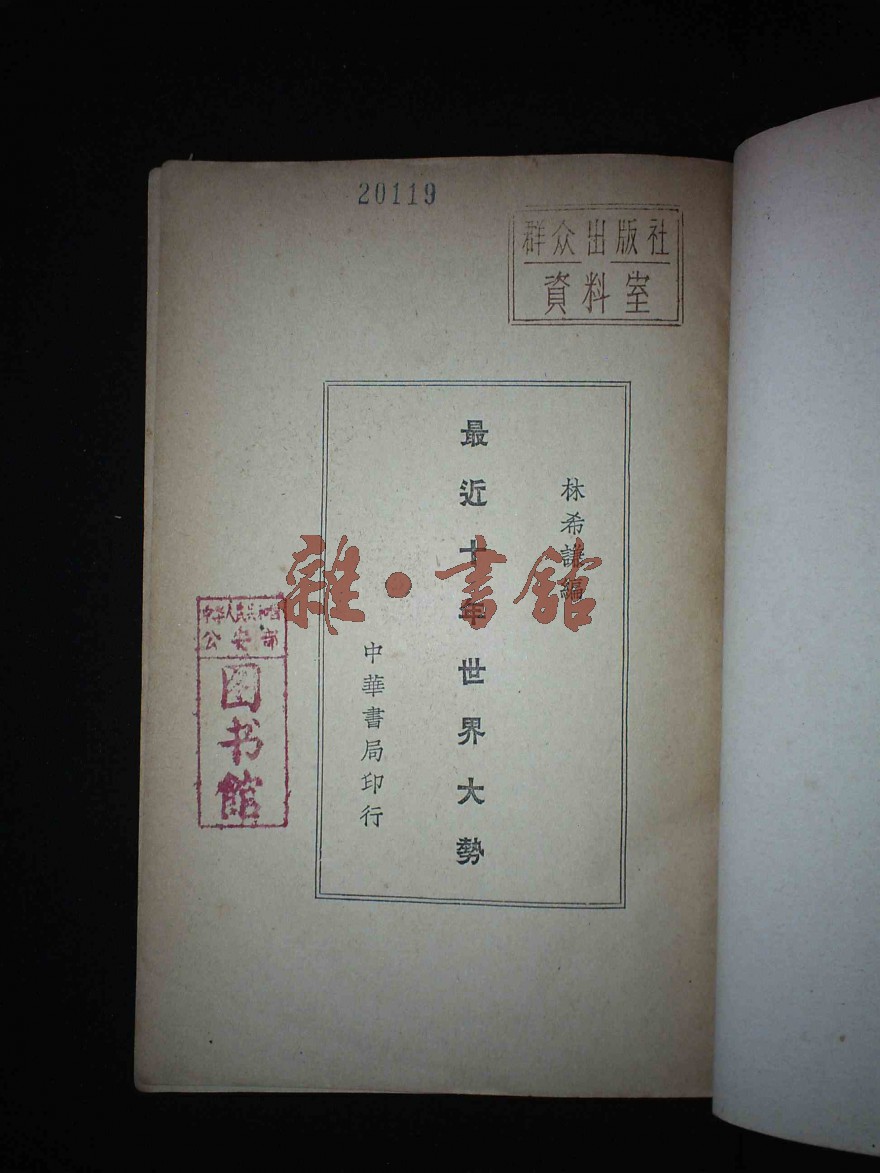 20119
群众出版社
資料室
林希謙編
最近十年世界大勢
中華書局印行
中华人民共和国
公安部
图书馆
雜·書館